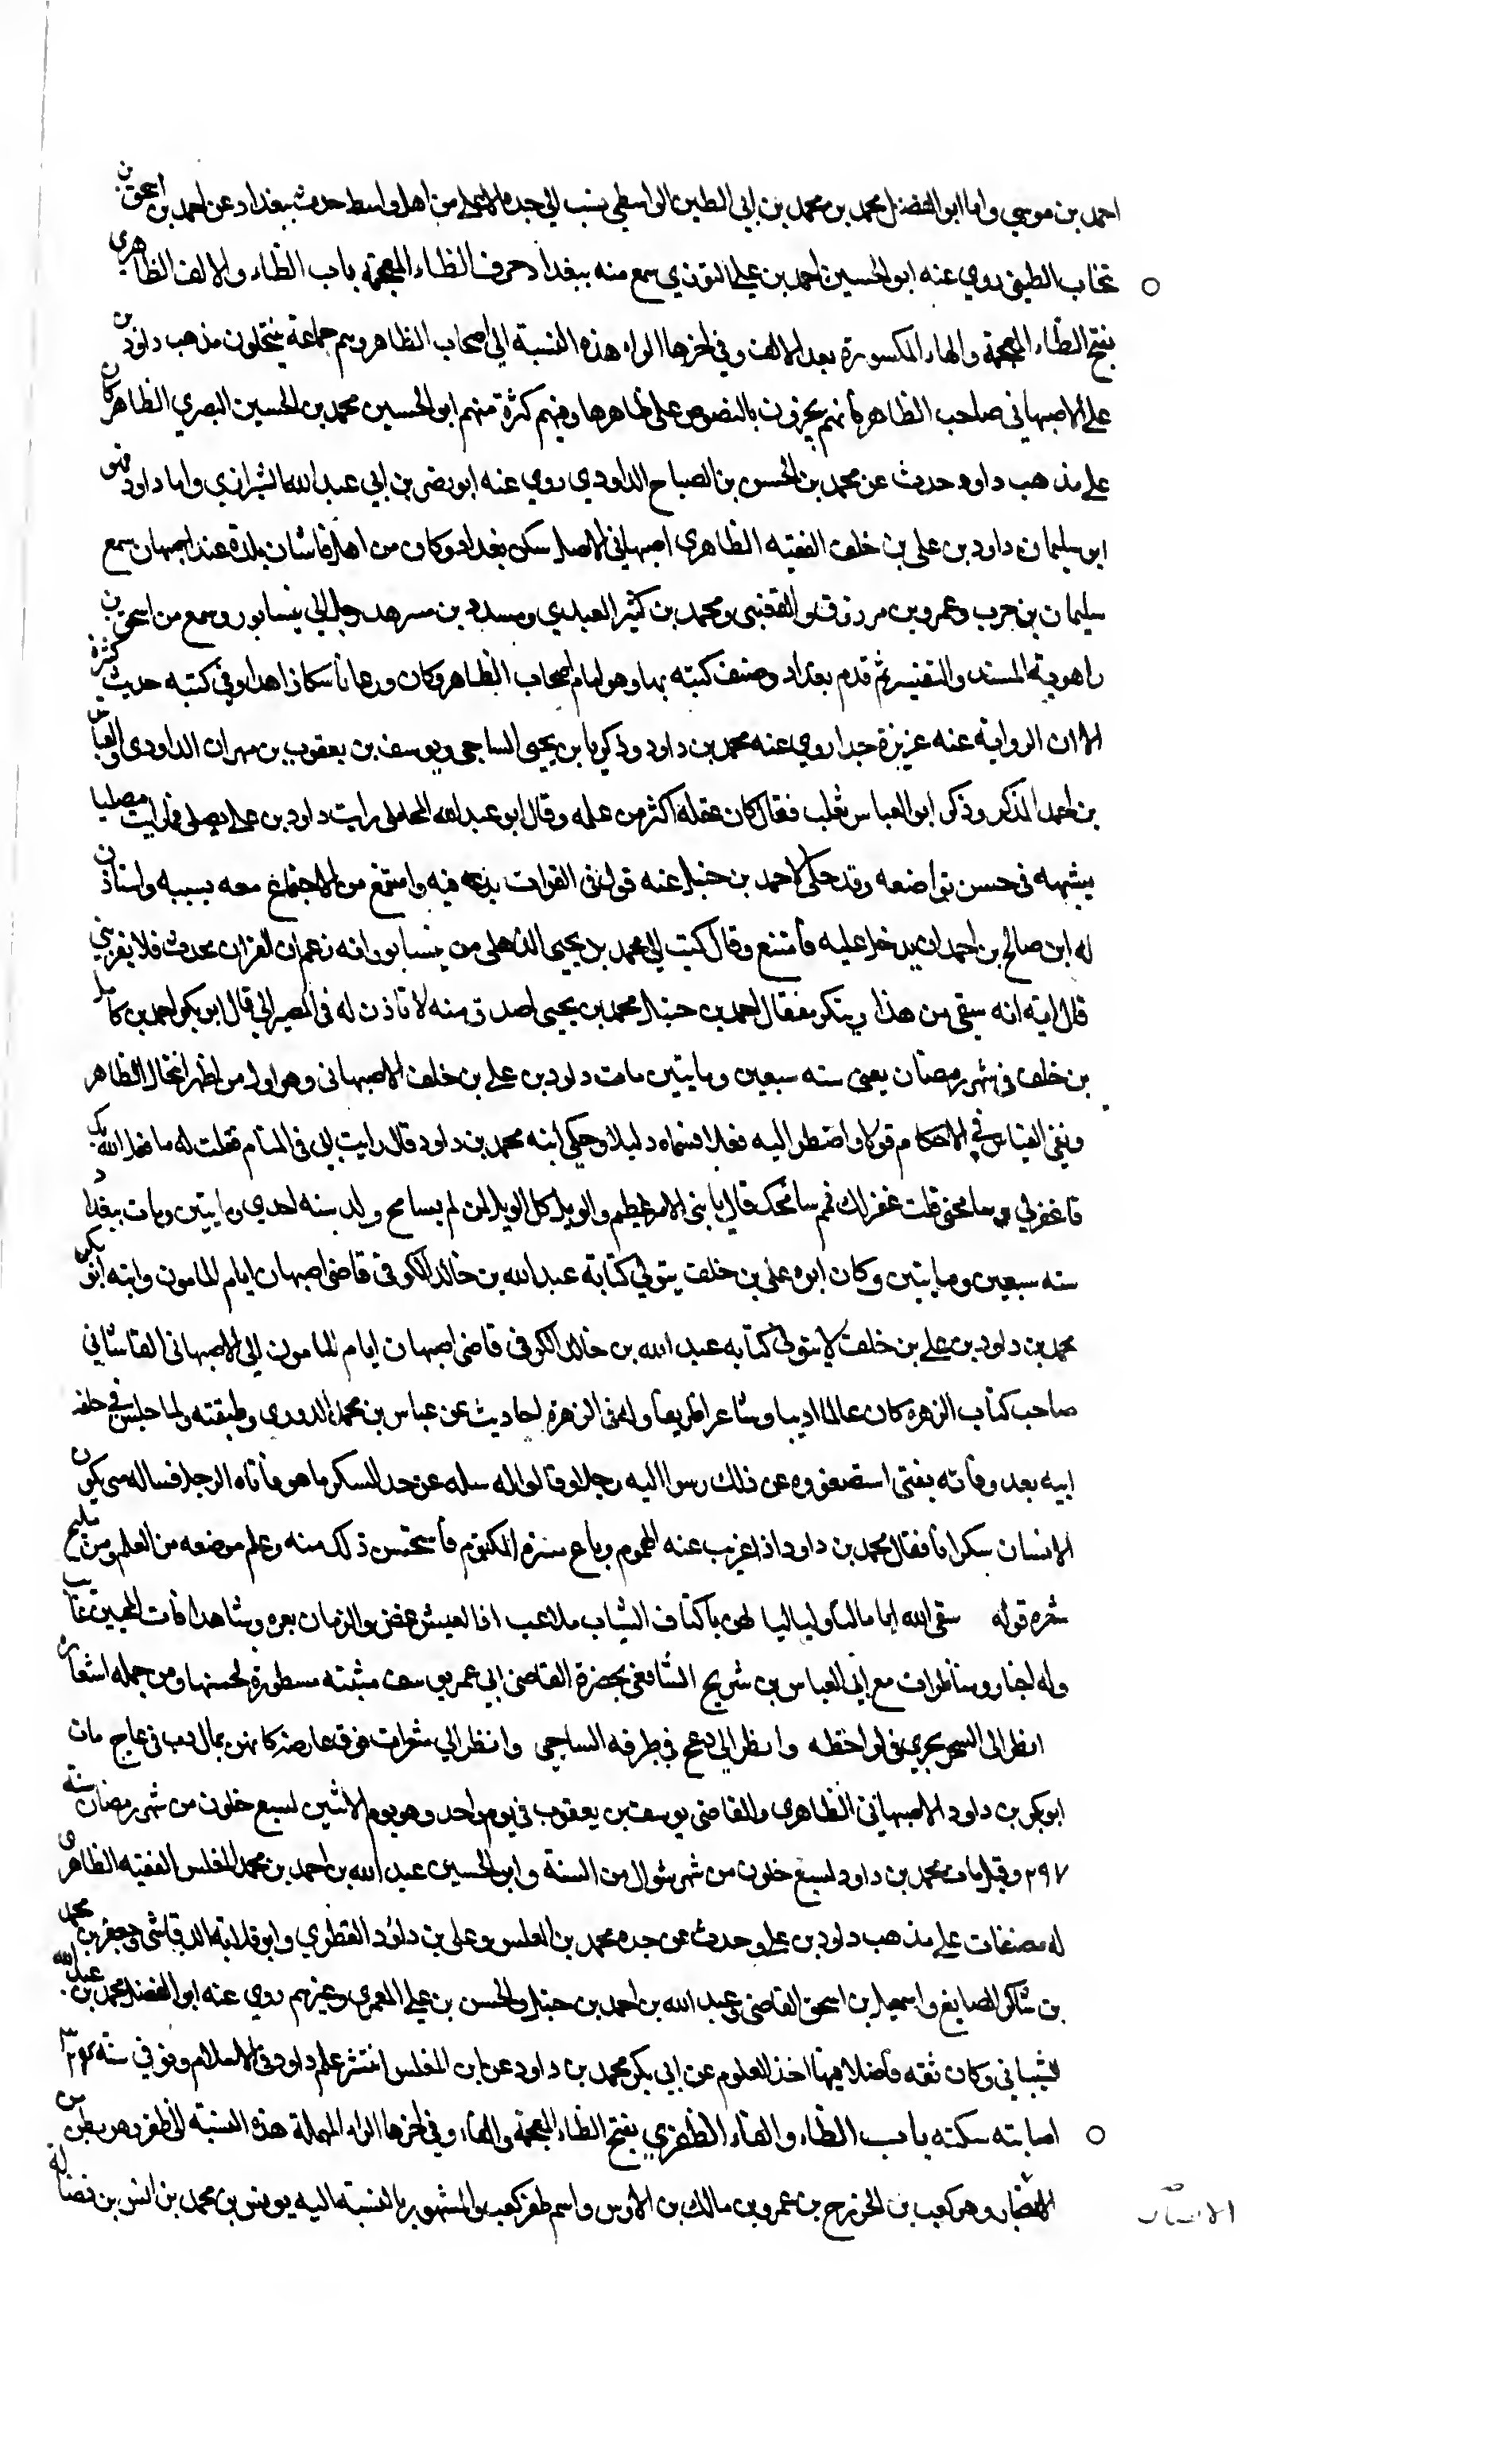 احمد بن موسي واما ابو الفضل محمد بن محمد بن ابي الطين الواسطي نسب الي جده الاعلي من اهل واسط حدث ببغداد عن احمد بن اسحق بن
نيخاب الطيني روي عنه ابو الحسين احمد بن علي التوزي سمع منه ببغداد حرف الظاء المعجمة باب الظاء والالف الظاهري
بفتح الظاء المعجمة والهاء المكسورة بعد الالف وفي اخرها الراء هذه النسبة الي اصحاب الظاهر وهم جماعة ينتحلون مذهب داود بن
علي الاصبهاني صاحب الظاهر فانهم يجرون النصوص علي ظاهرها وفيهم كثرة منهم ابو الحسين محمد بن الحسين البصري الظاهري كان
علي مذهب داود حدث عن محمد بن الحسن بن الصباح الداودي روي عنه ابو نصر بن ابي عبد الله الشيرازي واما داود فهو
ابو سليمان داود بن علي بن خلف الفقيه الظاهري اصبهاني الاصل سكن بغداد وكان من اهل قاشان بلدة عند اصبهان سمع
سليمان بن حرب وعمرو بن مرزوق والقعنبي ومحمد بن كثير العبدي ومسدد بن مسرهد رحل الي نيسابور وسمع من اسحق بن
راهوية المسند والتفسير ثم قدم بغداد وصنف كتبه بها وهو امام اصحاب الظاهر وكان ورعا ناسكا زاهدا وفي كتبه حديث كثيرة
الا ان الرواية عنه عزيزة جدا روي عنه محمد بن داود وزكريا بن يحيي الساجي ويوسف بن يعقوب بن مهران الداودي والعباس
بن احمد المذكر وذكر ابو العباس ثعلب فقال كان عقله اكثر من علمه وقال ابو عبد الله المحاملي رايت داود بن علي يصلي فما رايت مصليا
يشبهه في حسن تواضعه وقد حكي لاحمد بن حنبل عنه قول في القران بدعه فيه وامتنع من الاجتماع معه بسببه واستاذن
له ابن صالح بن احمد ان يدخل عليه فامتنع وقال كتب الي محمد بن يحيي الذهلي من نيسابور انه زعم ان القران محدث فلا يقربني
قال ابة انه ينتفي من هذا وينكره فقال احمد بن حنبل محمد بن يحيي اصدق منه لا تاذن له في المصير الي قال ابو بكر احمد بن كامل
بن خلف في شهر رمضان يعني سنه سبعين ومايتين مات داود بن علي بن خلف الاصبهاني وهو اول من اظهر انتحال الظاهر
ونفي القياس في الاحكام قولا واضطر اليه فعلا فسماه دليلا وحكي ابنه محمد بن داود قال رايت ابي في المنام فقلت له ما فعل الله بك
قال غفر لي وسامحني قلت غفر لك فمم سامحك قال يا بني الامر عظيم والويل كل الويل لمن لم يسامح ولد سنه احدي ومايتين ومات ببغداد
سنه سبعين ومايتين وكان ابوه علي بن خلف يتولي كتابة عبد الله بن خالد الكوفي قاضي اصبهان ايام المامون وابنه ابو بكر
محمد بن داود بن علي بن خلف لا يتولي كتابه عبد الله بن خالد الكوفي قاضي اصبهان ايام المامون الي الاصبهاني القاشاني
صاحب كتاب الزهرة كان عالما اديبا وشاعرا ظريفا وله في الزهرة احاديث عن عباس بن محمد الدوري وطبقته ولما جلس في حلقه
ابيه بعد وفاته يفتي استصغروه عن ذلك فدسوا اليه رجلا وقالوا له سله عن حد السكر ما هو فاتاه الرجل فساله متي يكون
الانسان سكرانا فقال محمد بن داود اذا عزبت عنه الهموم وباح بسره المكتوم فاستحسن ذلك منه وعلم موضعه من العلم ومن مليح
شعره قوله سقي الله اياما لنا ولياليا لهن باكناف الشباب ملاعب اذ العيش غض والزمان بغره وشاهد افات المحبين غايب
وله اخبار ومناظرات مع ابي العباس بن شريح الشافعي بحضرة القاضي ابي عمر يوسف مثبتة مسطورة لحسنها ومن جمله اشعاره
انظر الي السحر يجري في لواحظه وانظر الي دعج في طرفه الساجي وانظر الي شعرات فوق عارضه كانهن نمال دب في عاج مات
ابو بكر بن داود الاصبهاني الظاهري والقاضي يوسف بن يعقوب في يوم واحد وهو يوم الاثنين لسبع خلون من شهر رمضان سنة
٢٩٧ وقيل مات محمد بن داود لسبع خلون من شهر شوال من السنة وابو الحسين عبد الله بن احمد بن محمد المغلس الفقيه الظاهري
له مصنفات علي مذهب داود بن علي وحدث عن جده محمد بن المغلس وعلي بن داود القنطري وابو قلابة الرقاشي وجعفر بن محمد
بن شاكر الصايغ واسمعيل بن اسحق القاضي وعبد الله بن احمد بن حنبل والحسن بن علي المعمري وغيرهم روي عنه ابو الفضل محمد بن عبد الله
الشيباني وكان ثقه فاضلا فهما اخذ العلوم عن ابي بكر محمد بن داود عن ابن المغلس انتشر علم داود في الاسلام وتوفي سنه ٣٢٤
اصابته سكته باب الظاء والفاء الظفري بفتح الظاء المعجمة والفاء وفي اخرها الراء المهملة هذه النسبة الي ظفر وهو بطن من
الانصار وهو كعب بن الخزرج بن عمرو بن مالك بن الاوس واسم ظفر كعب والمشهور بالنسبة اليه يونس بن محمد بن انس بن فضالة